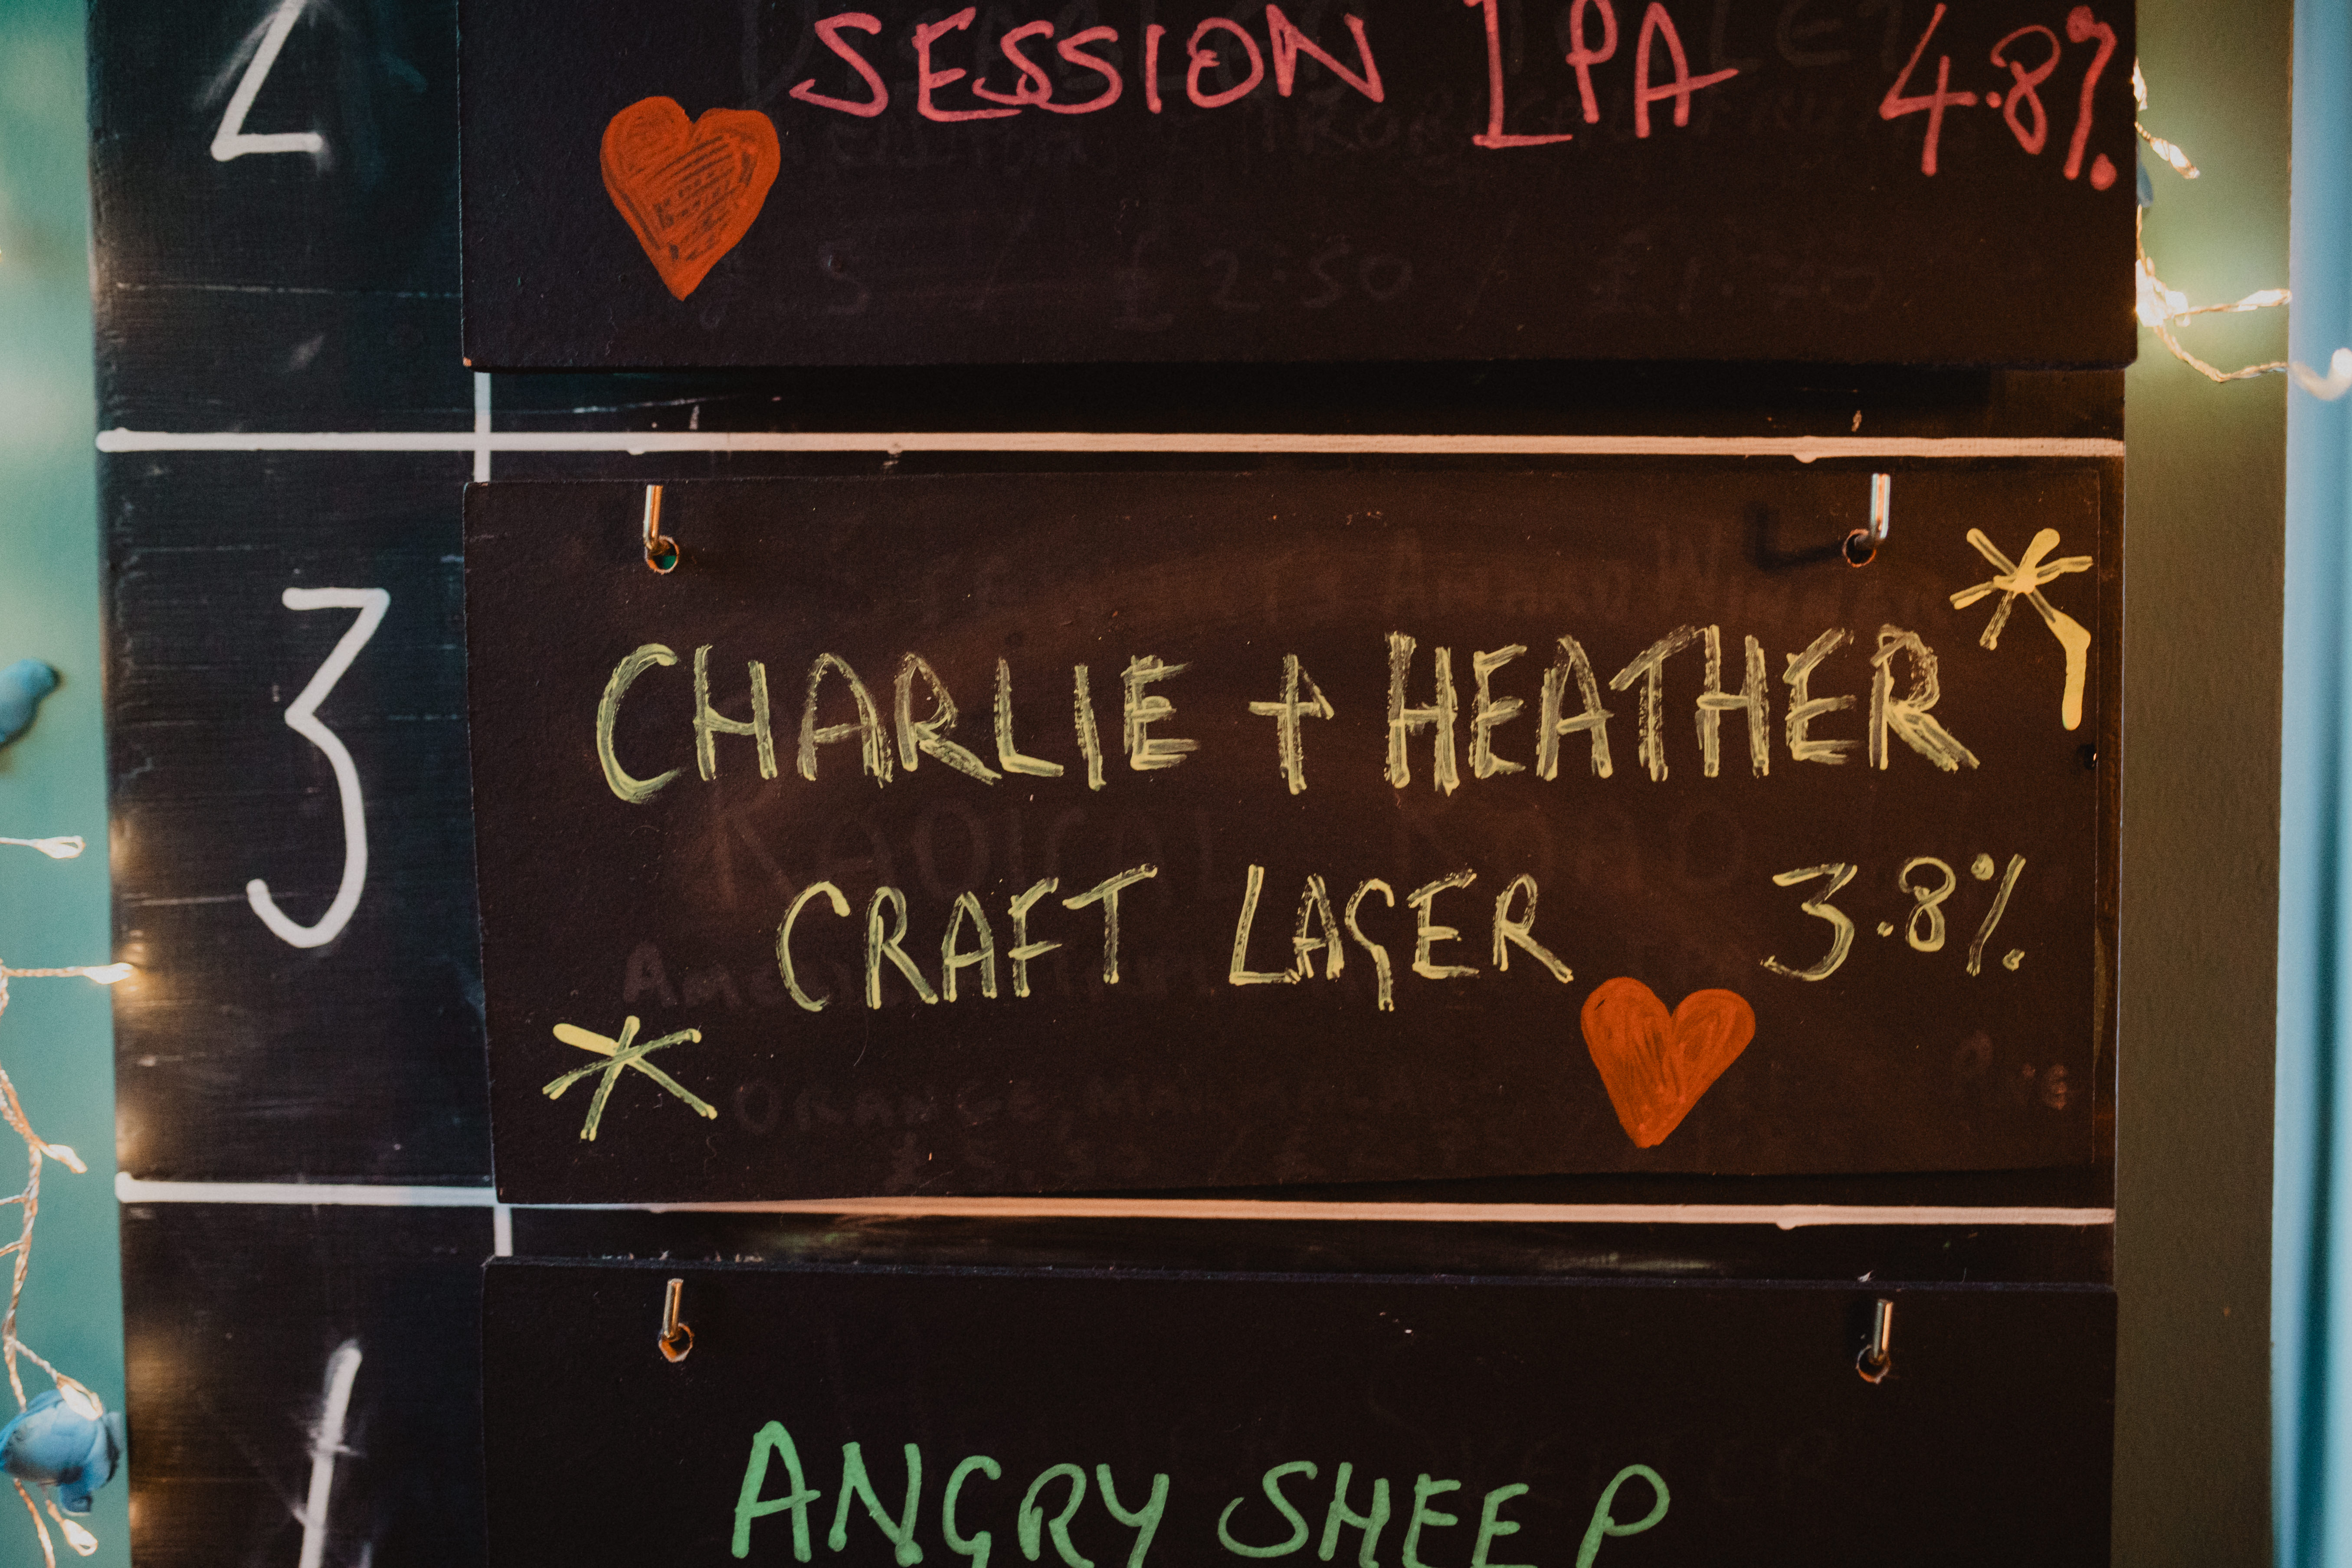 2
SESSION IPA 4.8%
£2.50 / £1.70
3
CHARLIE + HEATHER
CRAFT LAGER 3.8%
ANGRY SHEEP